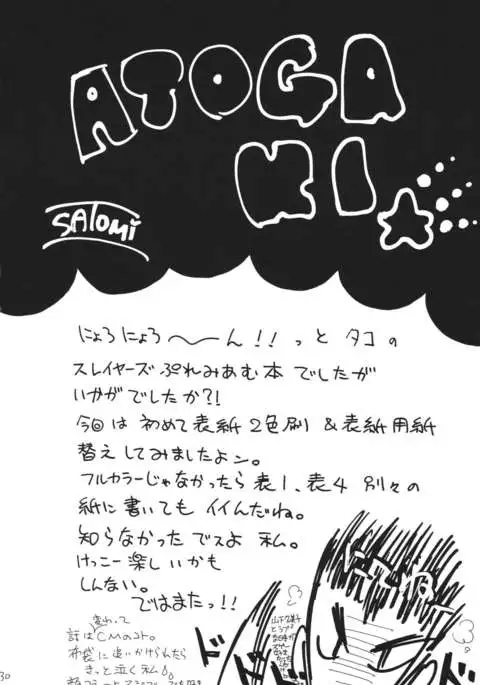 ATOGA
KI
SATOMi
にょろにょろ〜〜ん!! っと タコの
スレイヤーズ ぷれみあむ本 でしたが
いかがでしたか?!
今回は 初めて 表紙 2色刷 & 表紙用紙
替えしてみましたよン。
フルカラーじゃなかったら 表1、表4 別々の
紙に書いても イイんだね。
知らなかったでスよ 私。
けっこー楽しいかも
しんない。
ではまたっ!!
変わって
話はCMのコト。
布袋に追いかけられたら
きっと泣く私。
ドド
ド
30